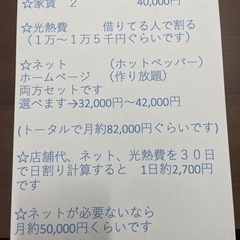 ☆家賃　２　　　　　40,000円
☆光熱費　　　借りてる人で割る
（１万～１万５千円ぐらいです）
☆ネット　　　（ホットペッパー）
ホームページ　（作り放題）
両方セットです
選べます→32,000円～42,000円
(トータルで月約82,000円ぐらいです)
☆店舗代、ネット、光熱費を３０日
で日割り計算すると　１日約2,700円
です
☆ネットが必要ないなら
月約50,000円くらいです